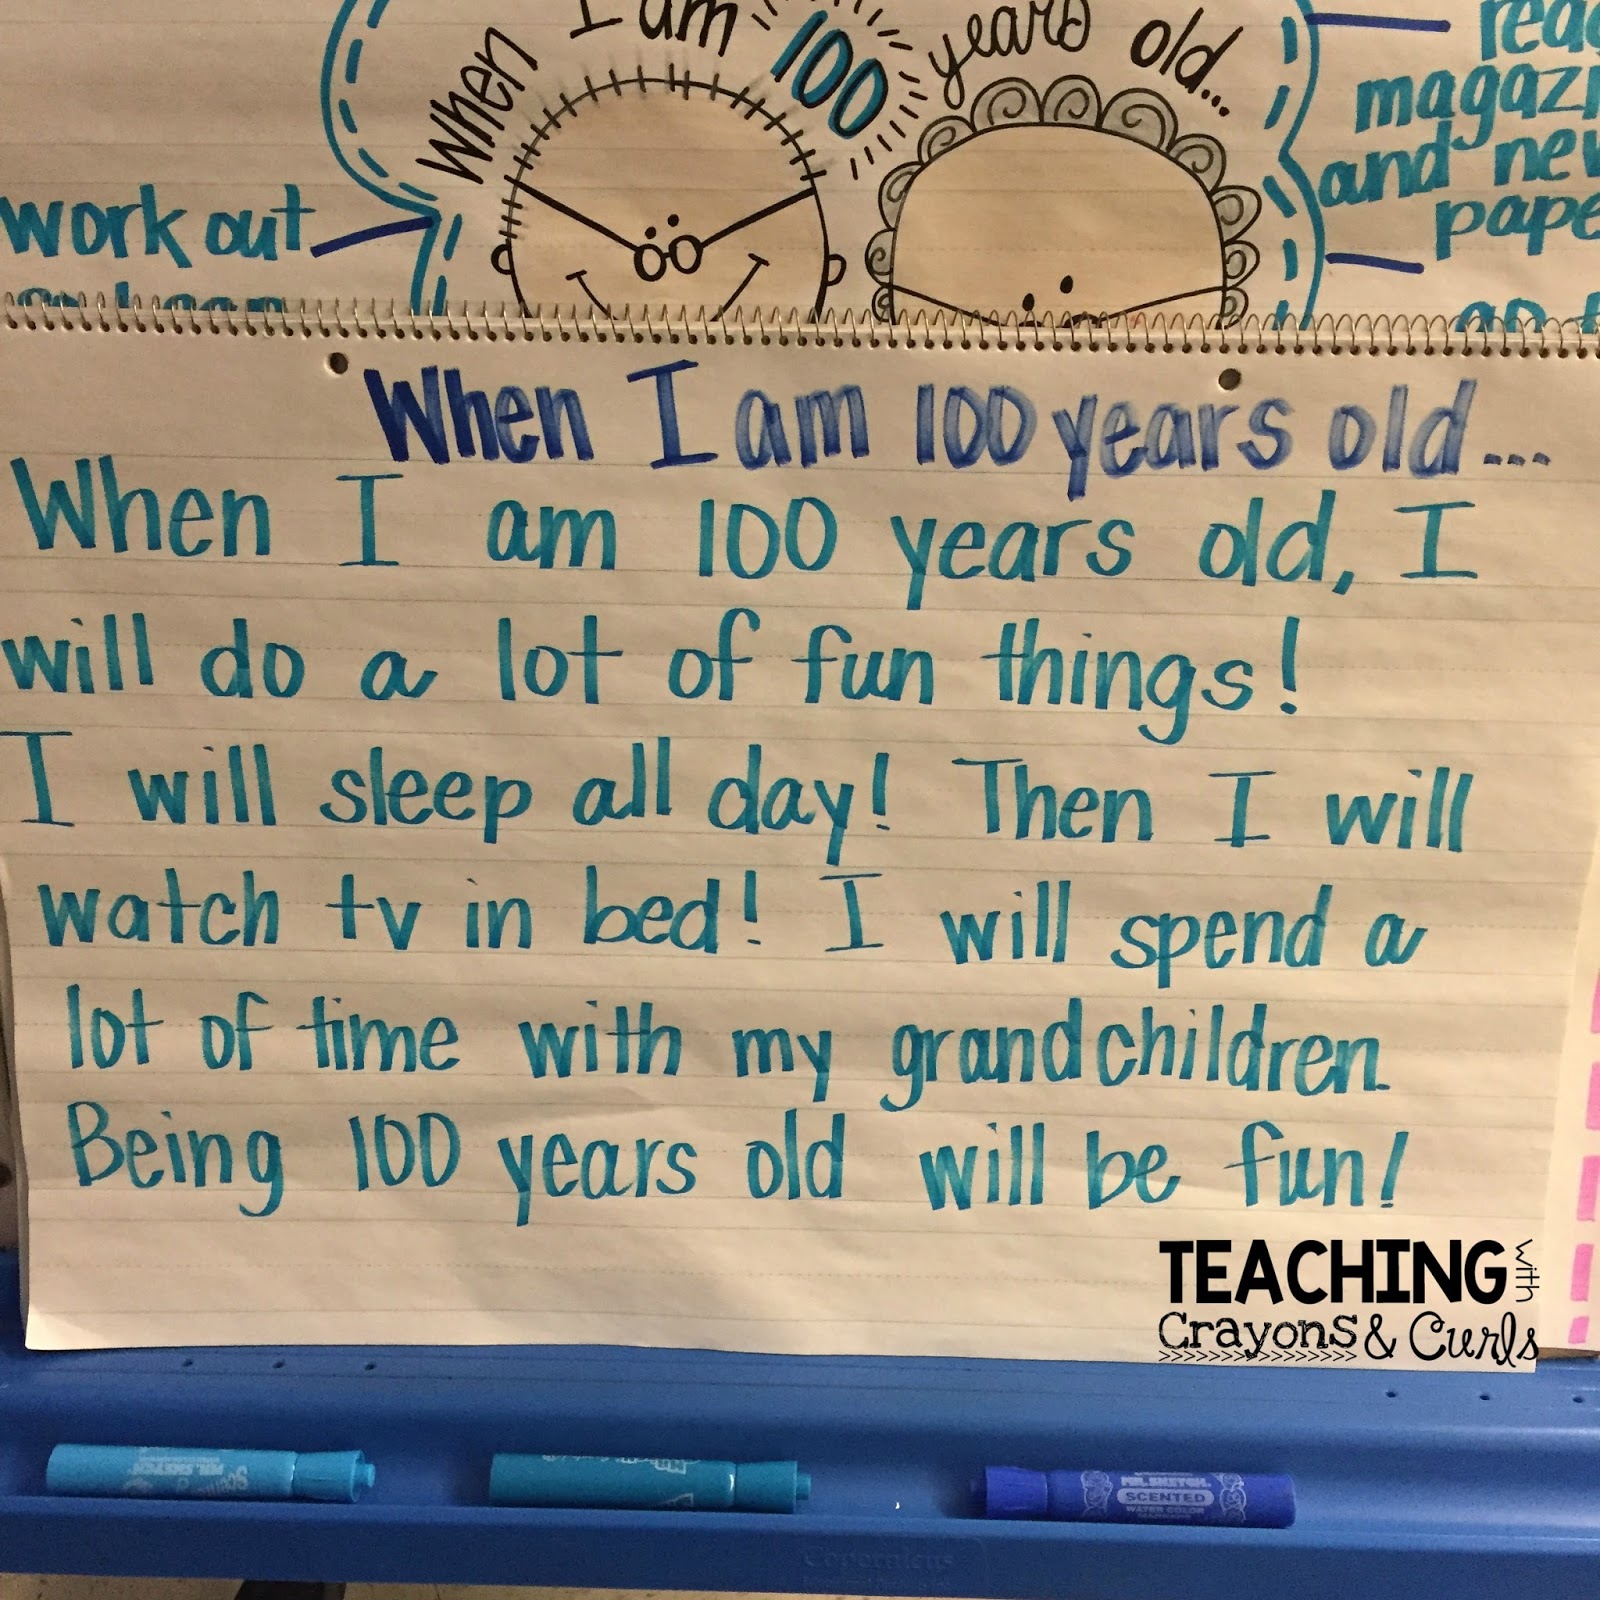 When I am 100 years old...
work out
magazi
and new
pape
When I am 100 years old...
When I am 100 years old, I
will do a lot of fun things!
I will sleep all day! Then I will
watch tv in bed! I will spend a
lot of time with my grandchildren.
Being 100 years old will be fun!
TEACHING with
Crayons & Curls
MR. SKETCH
MR. SKETCH
SCENTED
WATER COLOR
Copernicus